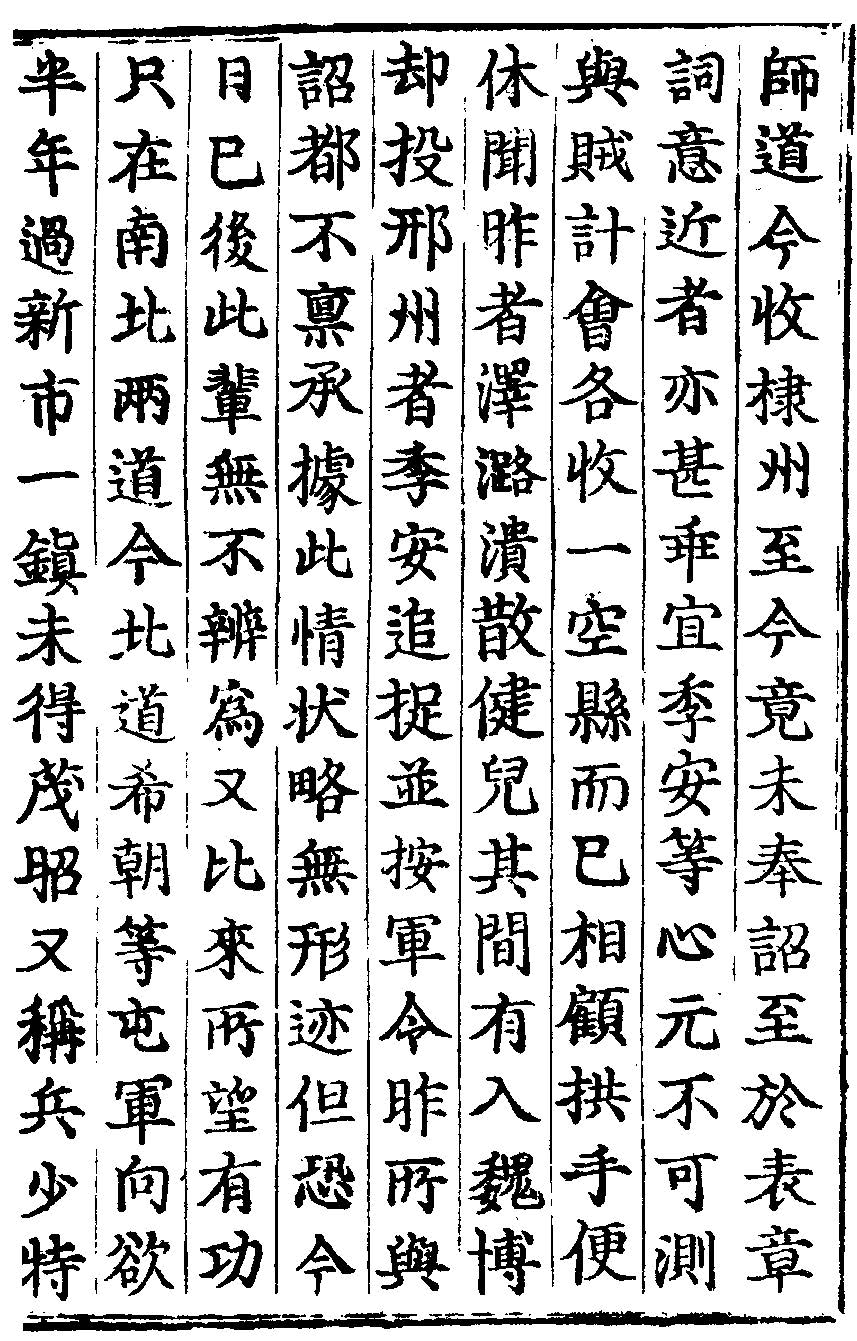 師道今收棣州至今竟未奉詔至於表章
詞意近者亦甚乖宜季安等心元不可測
與賊計會各收一空縣而已相顧拱手便
休聞昨者澤潞潰散健兒其間有入魏博
却投邢州者季安追捉並按軍令昨所與
詔都不稟承據此情狀略無形迹但恐今
日已後此輩無不辨爲又比來所望有功
只在南北兩道今北道希朝等屯軍向欲
半年過新市一鎮未得茂昭又稱兵少特